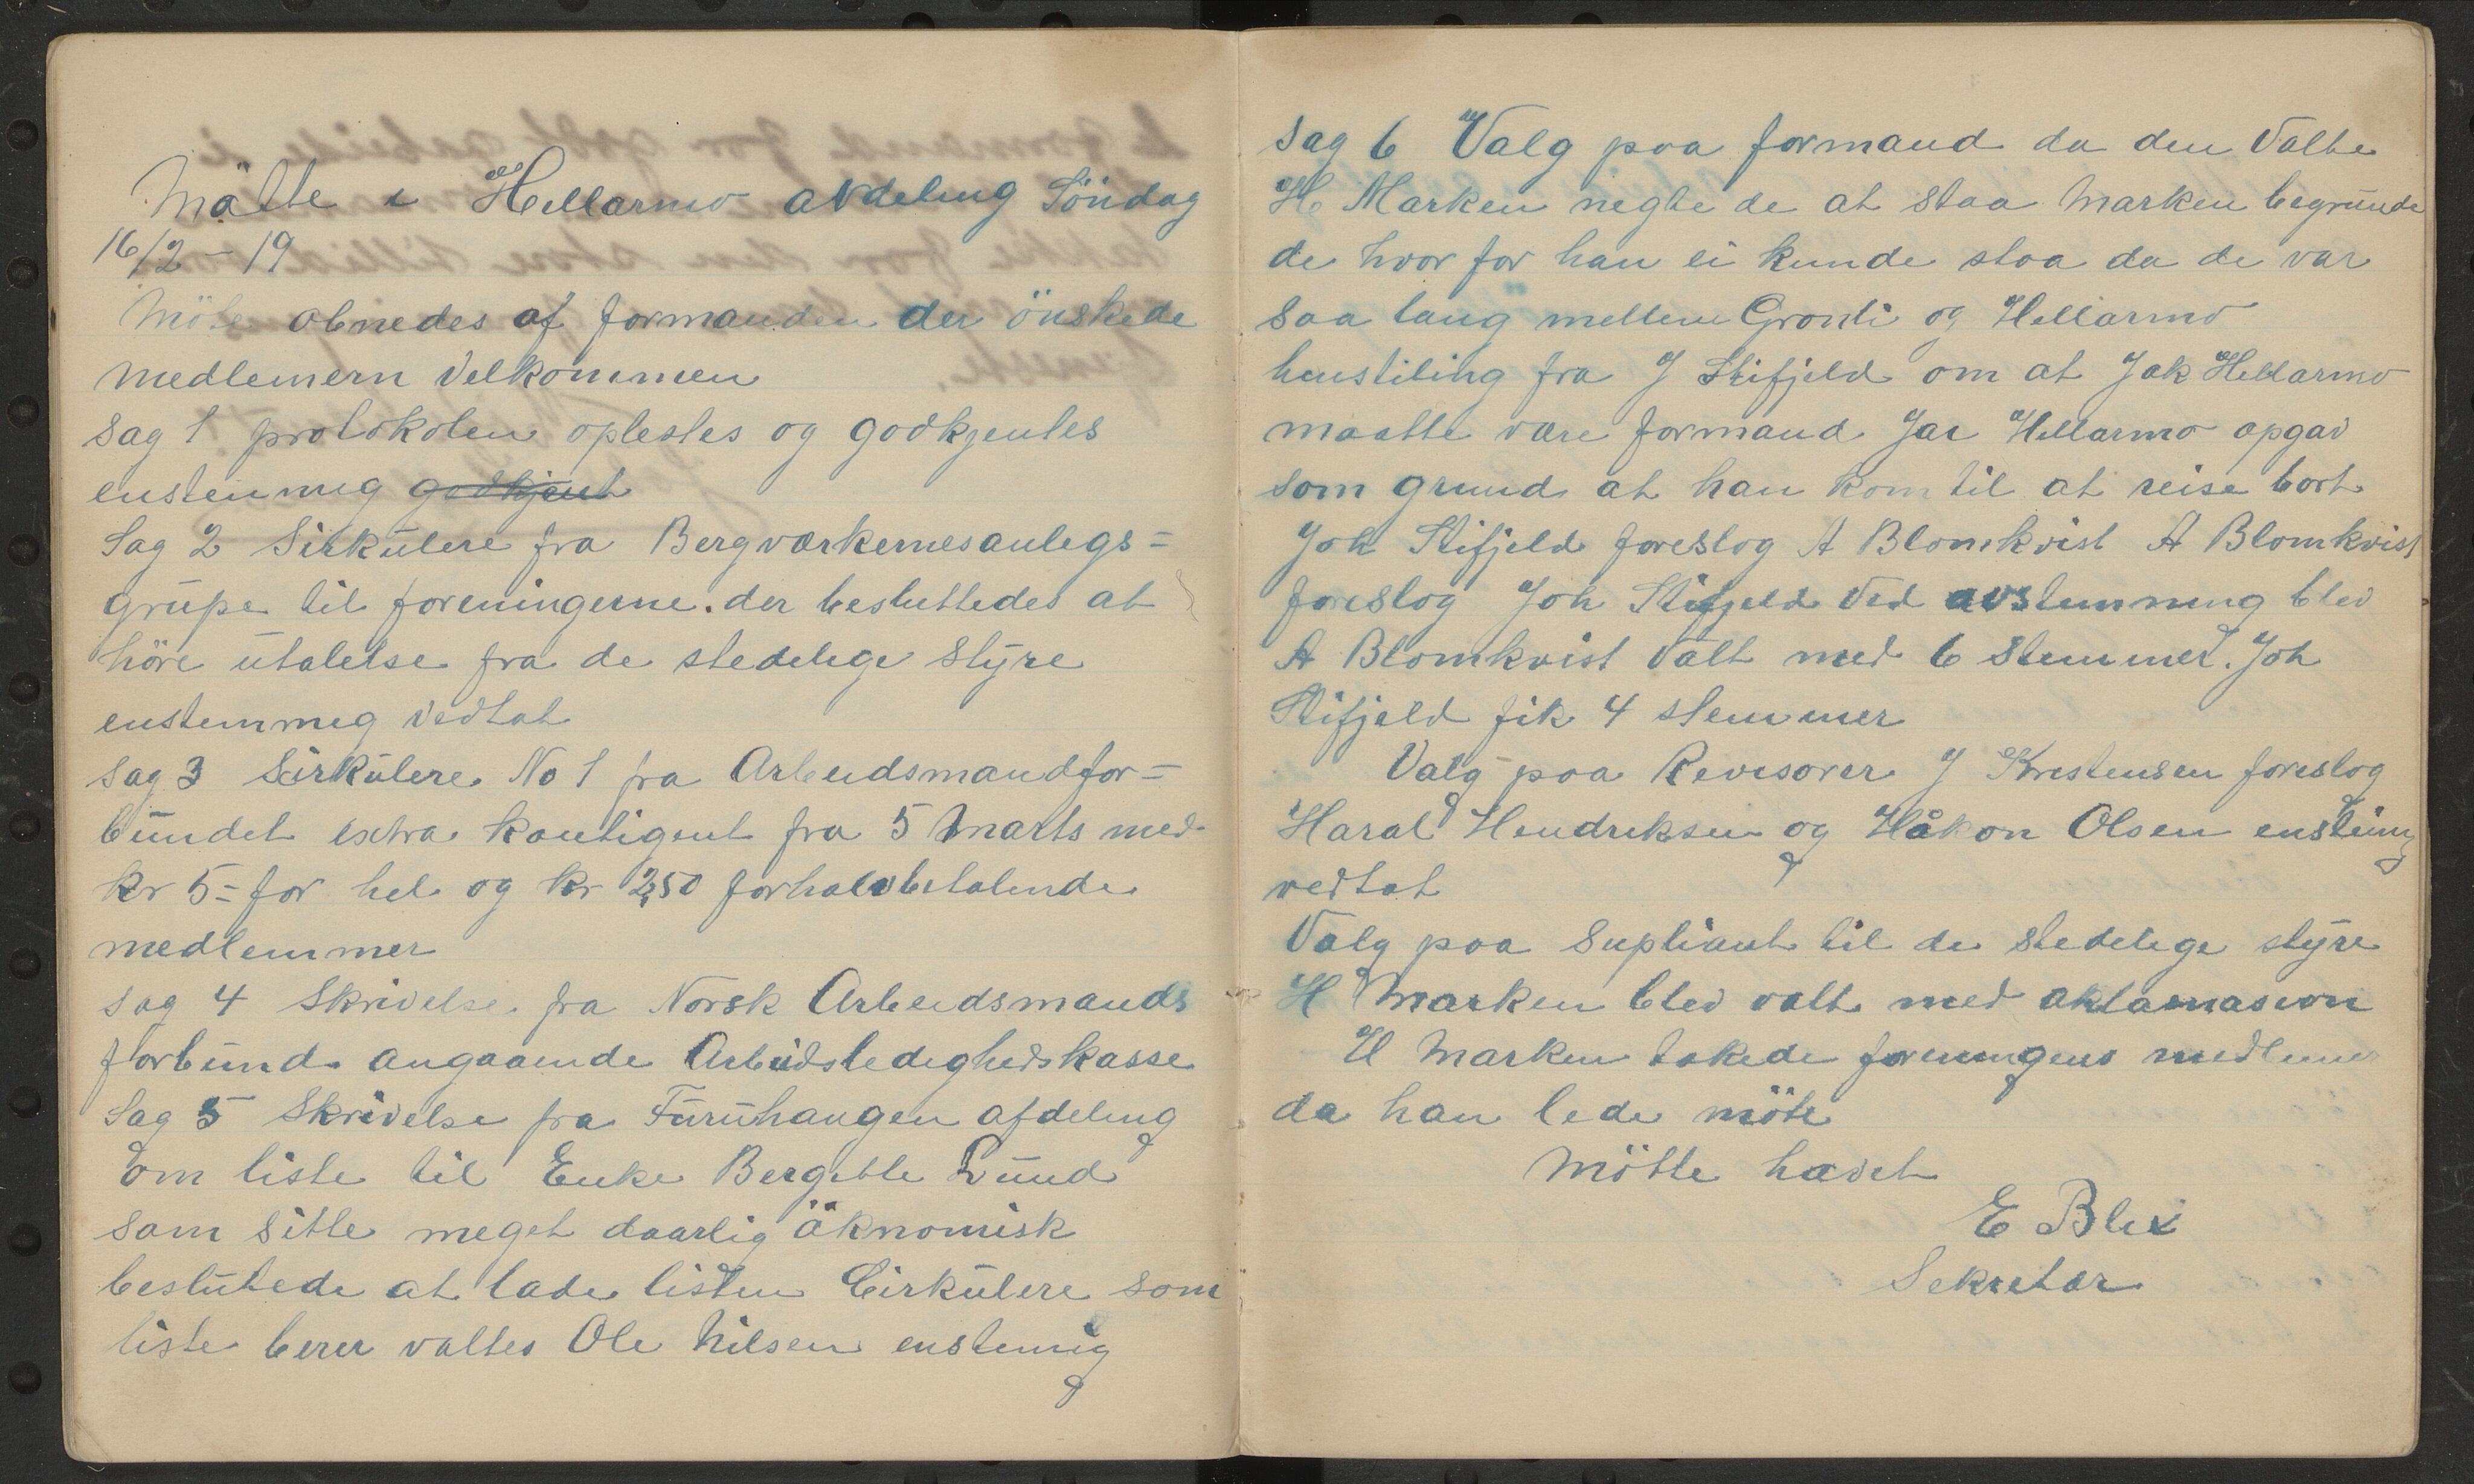 Mötte i Hellarmo avdeling Söndag
16/2 - 19
Möte obnedes af formanden der önskede
medlemern Velkommen
Sag 1 protokolen oplestes og godkjentes
enstemmig godkjent
Sag 2 Sirkulere fra Bergværkernesanlegs=
grupe til foreningerne. der besluttedes at
höre utalelse fra de stedelige Styre
enstemmeg vedtat
Sag 3 Sirkulere No 1 fra Arbeidsmandfor=
bundet extra kontigent fra 5 Marts med
kr 5= for hel og kr 2,50 for halvbetalende
medlemmer
Sag 4 Skrivelse fra Norsk Arbeidsmands
forbund angaaende Arbeidsledighedskasse
Sag 5 Skrivelse fra Furuhaugen afdeling
om liste til Enke Bergitte Lund
som sitte meget daarlig äknomisk
beslutede at lade listen Cirkulere som
liste berer valtes Ole Nilsen enstemig
Sag 6 Valg paa formand da den Valte
H Marken negtede at staa Marken begrunde
de hvor for han ei kunde staa da de var
saa lang mellem Gronli og Hellarmo
henstiling fra J Stifjeld om at Jak Hellarmo
maatte være formand Jak Hellarmo opgav
som grund at han kom til at reise bort
Joh Stifjeld foreslog A Blomkvist A Blomkvist
foreslog Joh Stifjeld Ved avstemning blev
A Blomkvist Valt med 6 Stemmer. Joh
Stifjeld fik 4 stemmer
Valg paa Revisorer J Kristensen foreslog
Harald Hendriksen og Håkon Olsen enstemig
vedtat
Valg paa Supliant til de stedelige styre
H Marken blev valt med aklamasion
H Marken takede foreningens medlemer
da han lede möte
Mötte hævet
E Blix
Sekretær